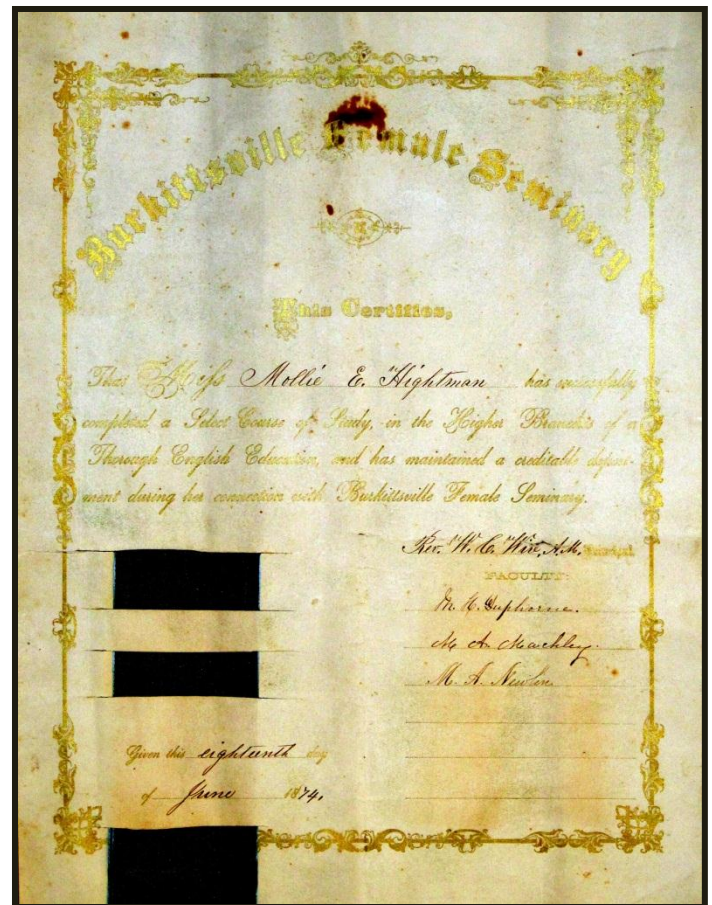 Burkittsville Female Seminary
This Certifies,
That Miss Mollie E. Hightman has successfully
completed a Select Course of Study, in the Higher Branches of a
Thorough English Education, and has maintained a creditable deport-
ment during her connection with Burkittsville Female Seminary.
Rev. W. C. Wire, A.M. Principal.
FACULTY:
M. A.
M. A.
Given this eighteenth day
of June 1874.